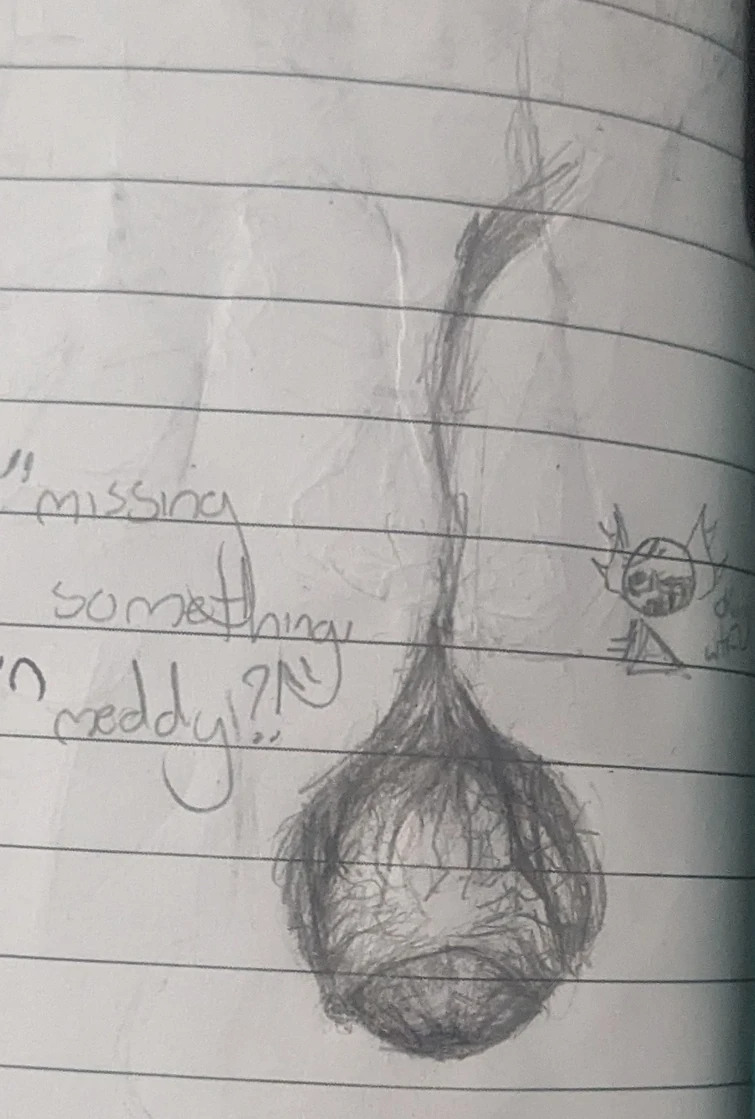 "missing
something
meddy!?"